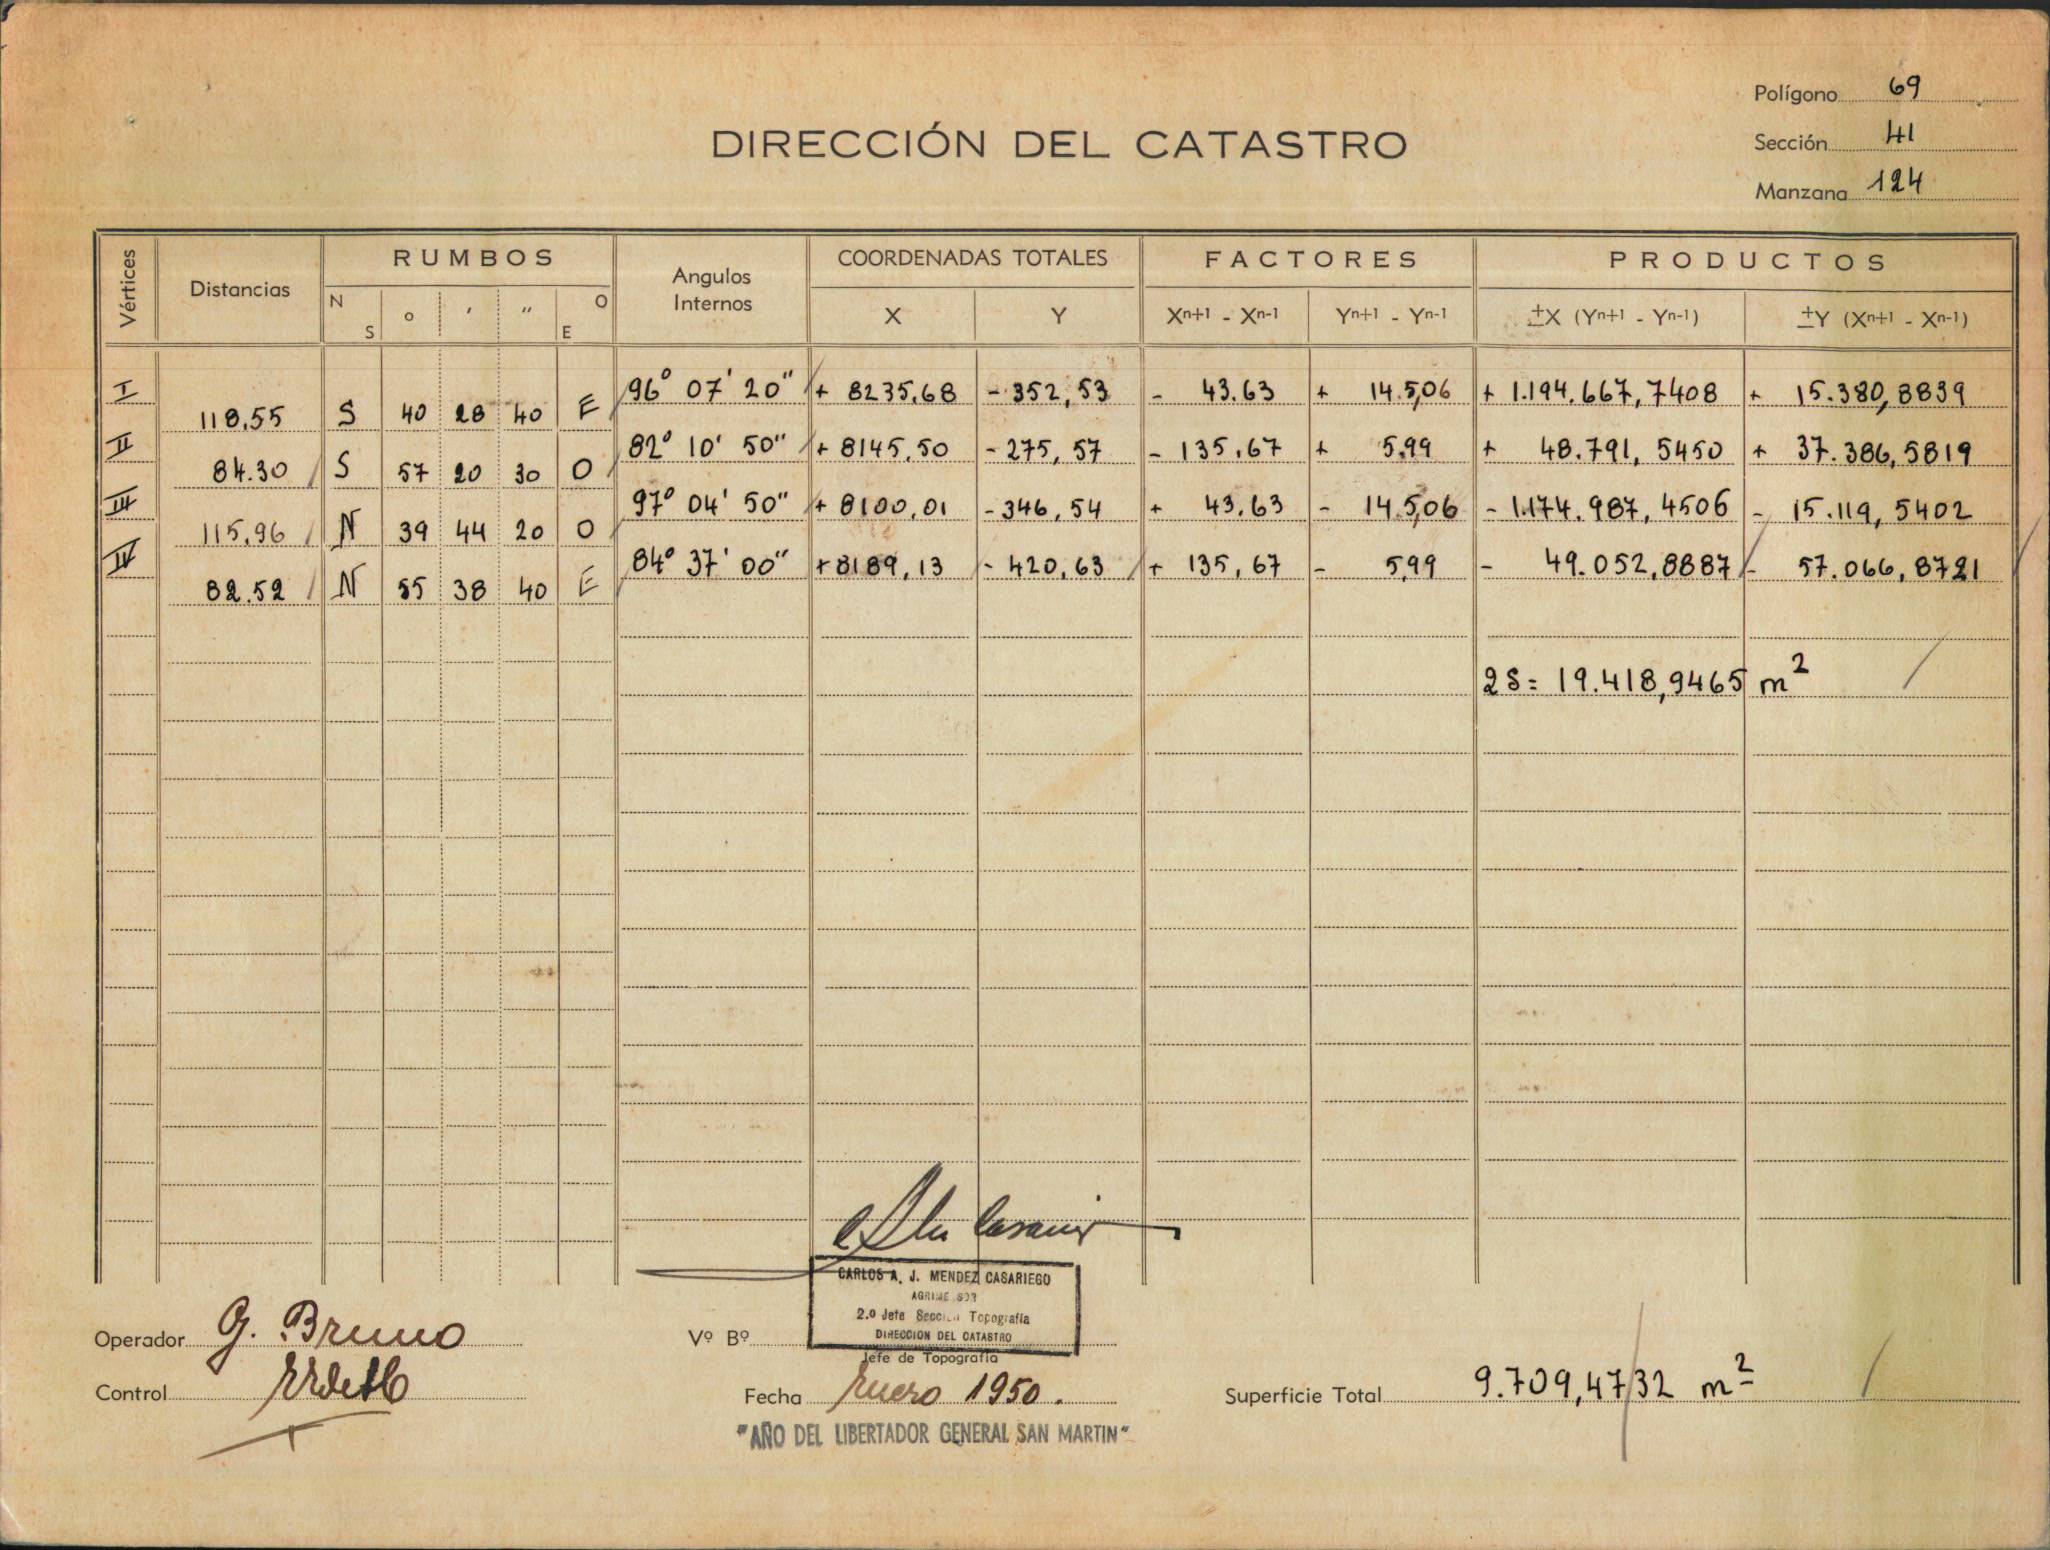 Polígono 69
DIRECCIÓN DEL CATASTRO
Sección 41
Manzana 124
Vértices Distancias RUMBOS Angulos Internos COORDENADAS TOTALES FACTORES PRODUCTOS
N S ° ′ ″ O E X Y Xn+1 - Xn-1 Yn+1 - Yn-1 ±X (Yn+1 - Yn-1) ±Y (Xn+1 - Xn-1)
I 96° 07' 20" + 8235,68 - 352,53 - 43,63 + 145,06 + 1.194.667,7408 + 15.380,8839
118,55 S 40 28 40 E
II 82° 10' 50" + 8145,50 - 275,57 - 135,67 + 5,99 + 48.791,5450 + 37.386,5819
84.30 S 57 20 30 O
III 97° 04' 50" + 8100,01 - 346,54 + 43,63 - 145,06 - 1.174.987,4506 - 15.119,5402
115,96 N 39 44 20 O
IV 84° 37' 00" + 8189,13 - 420,63 + 135,67 - 5,99 - 49.052,8887 - 57.066,8721
82.52 N 55 38 40 E
2S = 19.418,9465 m²
CARLOS A. J. MENDEZ CASARIEGO
2.º Jefe Topografía
DIRECCION DEL CATASTRO
Operador G. Bruno Vº Bº
Jefe de Topografía
Control Fecha Enero 1950. Superficie Total 9.709,4732 m²
"AÑO DEL LIBERTADOR GENERAL SAN MARTIN"